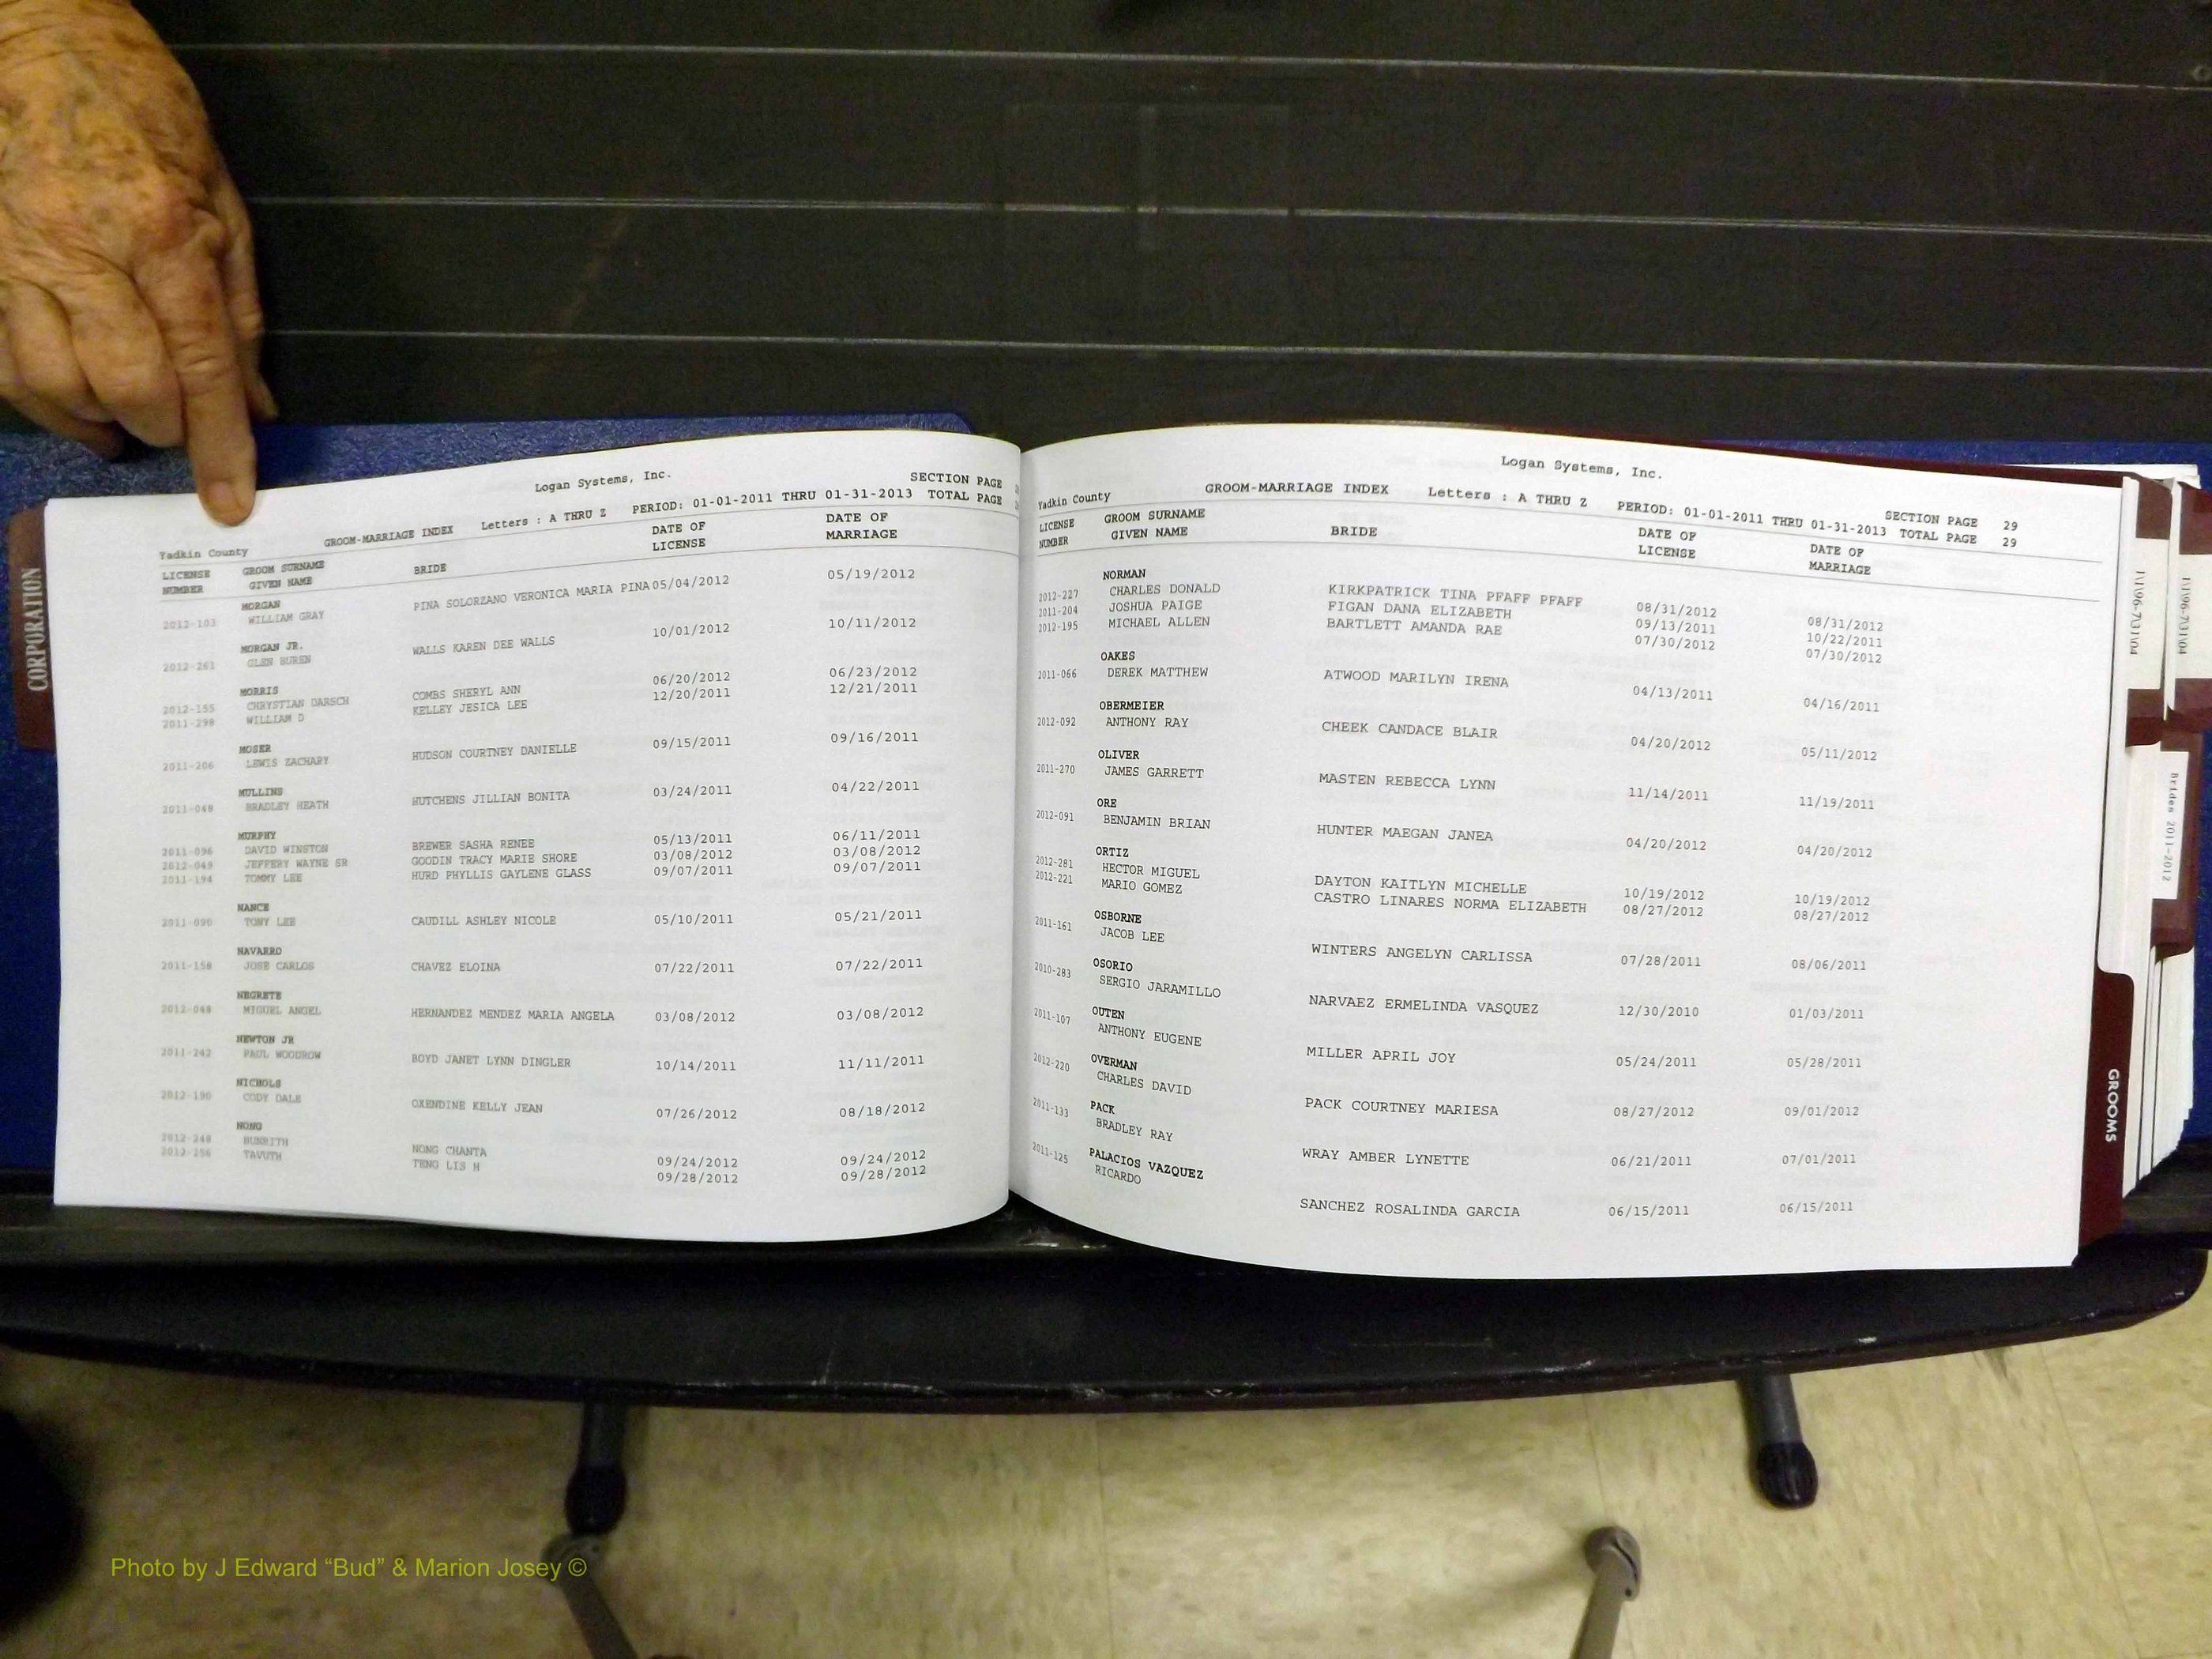 CORPORATION
Logan Systems, Inc.
SECTION PAGE
Yadkin County GROOM-MARRIAGE INDEX Letters : A THRU Z PERIOD: 01-01-2011 THRU 01-31-2013 TOTAL PAGE
LICENSE NUMBER GROOM SURNAME GIVEN NAME BRIDE DATE OF LICENSE DATE OF MARRIAGE
MORGAN
2012-103 WILLIAM GRAY PINA SOLORZANO VERONICA MARIA PINA 05/04/2012 05/19/2012
MORGAN JR.
2012-261 GLEN BUREN WALLS KAREN DEE WALLS 10/01/2012 10/11/2012
MORRIS
2012-155 CHRYSTIAN DARSCH COMBS SHERYL ANN 06/20/2012 06/23/2012
2011-298 WILLIAM D KELLEY JESICA LEE 12/20/2011 12/21/2011
MOSER
2011-206 LEWIS ZACHARY HUDSON COURTNEY DANIELLE 09/15/2011 09/16/2011
MULLINS
2011-048 BRADLEY HEATH HUTCHENS JILLIAN BONITA 03/24/2011 04/22/2011
MURPHY
2011-096 DAVID WINSTON BREWER SASHA RENEE 05/13/2011 06/11/2011
2012-049 JEFFERY WAYNE SR GOODIN TRACY MARIE SHORE 03/08/2012 03/08/2012
2011-194 TOMMY LEE HURD PHYLLIS GAYLENE GLASS 09/07/2011 09/07/2011
NANCE
2011-090 TONY LEE CAUDILL ASHLEY NICOLE 05/10/2011 05/21/2011
NAVARRO
2011-158 JOSE CARLOS CHAVEZ ELOINA 07/22/2011 07/22/2011
NEGRETE
2012-048 MIGUEL ANGEL HERNANDEZ MENDEZ MARIA ANGELA 03/08/2012 03/08/2012
NEWTON JR
2011-242 PAUL WOODROW BOYD JANET LYNN DINGLER 10/14/2011 11/11/2011
NICHOLS
2012-190 CODY DALE OXENDINE KELLY JEAN 07/26/2012 08/18/2012
NONG
2012-248 BUNRITH NONG CHANTA 09/24/2012 09/24/2012
2012-256 TAVUTH TENG LIS H 09/28/2012 09/28/2012
Logan Systems, Inc.
SECTION PAGE 29
Yadkin County GROOM-MARRIAGE INDEX Letters : A THRU Z PERIOD: 01-01-2011 THRU 01-31-2013 TOTAL PAGE 29
LICENSE NUMBER GROOM SURNAME GIVEN NAME BRIDE DATE OF LICENSE DATE OF MARRIAGE
NORMAN
2012-227 CHARLES DONALD KIRKPATRICK TINA PFAFF PFAFF 08/31/2012 08/31/2012
2011-204 JOSHUA PAIGE FIGAN DANA ELIZABETH 09/13/2011 10/22/2011
2012-195 MICHAEL ALLEN BARTLETT AMANDA RAE 07/30/2012 07/30/2012
OAKES
2011-066 DEREK MATTHEW ATWOOD MARILYN IRENA 04/13/2011 04/16/2011
OBERMEIER
2012-092 ANTHONY RAY CHEEK CANDACE BLAIR 04/20/2012 05/11/2012
OLIVER
2011-270 JAMES GARRETT MASTEN REBECCA LYNN 11/14/2011 11/19/2011
ORE
2012-091 BENJAMIN BRIAN HUNTER MAEGAN JANEA 04/20/2012 04/20/2012
ORTIZ
2012-281 HECTOR MIGUEL DAYTON KAITLYN MICHELLE 10/19/2012 10/19/2012
2012-221 MARIO GOMEZ CASTRO LINARES NORMA ELIZABETH 08/27/2012 08/27/2012
OSBORNE
2011-161 JACOB LEE WINTERS ANGELYN CARLISSA 07/28/2011 08/06/2011
OSORIO
2010-283 SERGIO JARAMILLO NARVAEZ ERMELINDA VASQUEZ 12/30/2010 01/03/2011
OUTEN
2011-107 ANTHONY EUGENE MILLER APRIL JOY 05/24/2011 05/28/2011
OVERMAN
2012-220 CHARLES DAVID PACK COURTNEY MARIESA 08/27/2012 09/01/2012
PACK
2011-133 BRADLEY RAY WRAY AMBER LYNETTE 06/21/2011 07/01/2011
PALACIOS VAZQUEZ
2011-125 RICARDO SANCHEZ ROSALINDA GARCIA 06/15/2011 06/15/2011
Brides 2011-2012
GROOMS
Photo by J Edward “Bud” & Marion Josey ©